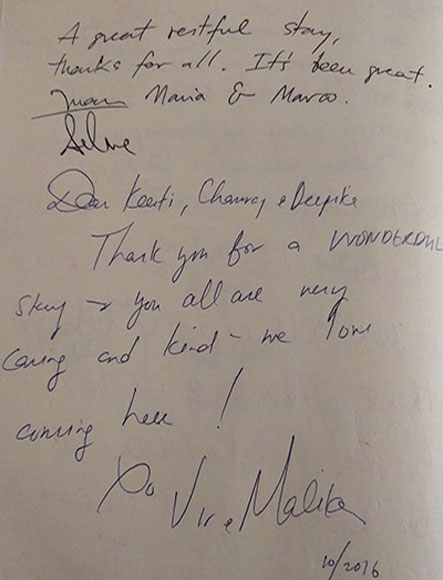 A great restful stay,
thanks for all. It's been great.
Juan Maria & Marco.
Dear Keeti, Chamraj & Deepike
Thank you for a WONDERFUL
stay & you all are very
caring and kind - we love
coming here !
Xo Vir & Malika
10/2016